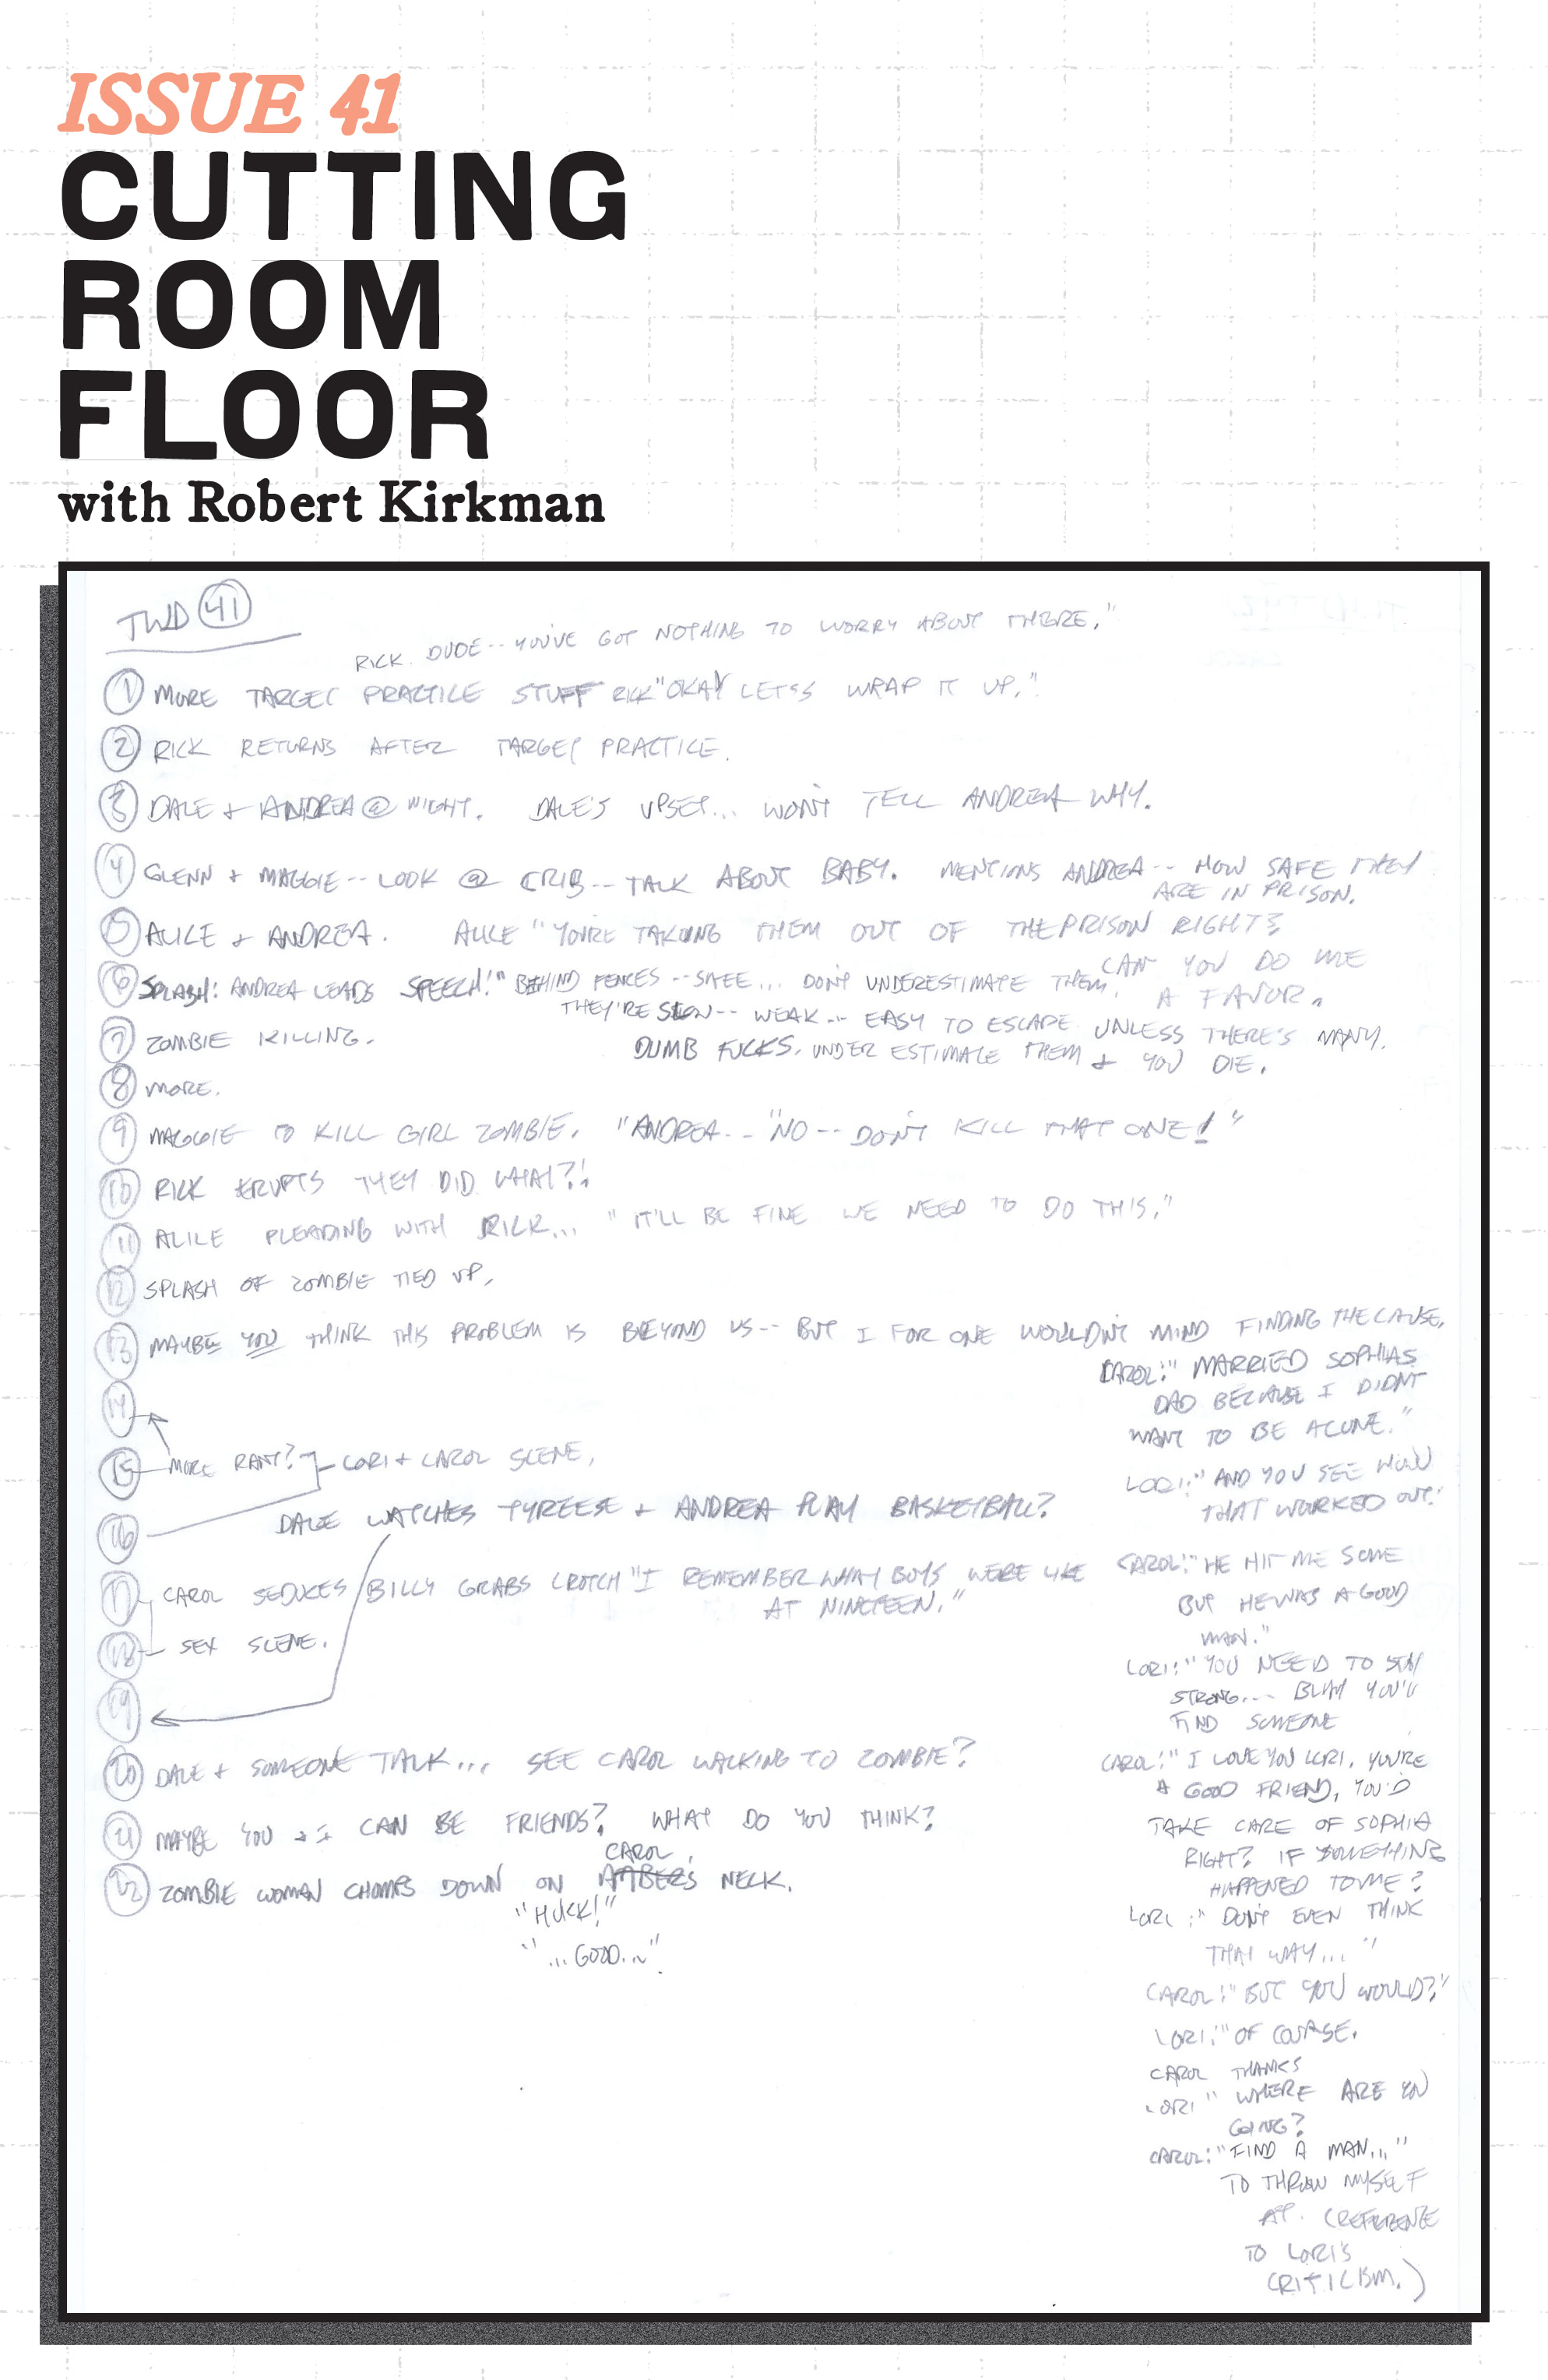 ISSUE 41
CUTTING
ROOM
FLOOR
with Robert Kirkman
TWD 41
RICK. DUDE-- YOU'VE GOT NOTHING TO WORRY ABOUT THERE."
1 MORE TARGET PRACTICE STUFF RICK "OKAY LET'S WRAP IT UP."
2 RICK RETURNS AFTER TARGET PRACTICE.
3 DALE + ANDREA @ NIGHT. DALE'S UPSET... WON'T TELL ANDREA WHY.
4 GLENN + MAGGIE -- LOOK @ CRIB -- TALK ABOUT BABY. MENTIONS ANDREA -- HOW SAFE THEY
ARE IN PRISON.
5 ALICE + ANDREA. ALICE "YOU'RE TAKING THEM OUT OF THE PRISON RIGHT?
CAN YOU DO ME
A FAVOR.
6 SPLASH: ANDREA LEADS SPEECH! "BEHIND FENCES -- SAFE... DON'T UNDERESTIMATE THEM.
THEY'RE SLOW -- WEAK -- EASY TO ESCAPE UNLESS THERE'S MANY.
DUMB FUCKS. UNDER ESTIMATE THEM + YOU DIE.
7 ZOMBIE KILLING.
8 MORE.
9 MAGGIE TO KILL GIRL ZOMBIE. "ANDREA -- "NO -- DON'T KILL THAT ONE!"
10 RICK ERUPTS THEY DID WHAT?!
11 ALICE PLEADING WITH RICK... "IT'LL BE FINE WE NEED TO DO THIS."
12 SPLASH OF ZOMBIE TIED UP.
13 MAYBE YOU THINK THIS PROBLEM IS BEYOND US -- BUT I FOR ONE WOULDN'T MIND FINDING THE CAUSE.
14
15 MORE RANT? LORI + CAROL SCENE.
16
DALE WATCHES TYREESE + ANDREA PLAY BASKETBALL?
17 CAROL SEDUCES BILLY GRABS CROTCH "I REMEMBER WHAT BOYS WERE LIKE
AT NINETEEN."
18 SEX SCENE.
19
20 DALE + SOMEONE TALK... SEE CAROL WALKING TO ZOMBIE?
21 MAYBE YOU + I CAN BE FRIENDS? WHAT DO YOU THINK?
CAROL
22 ZOMBIE WOMAN CHOMPS DOWN ON AMBER'S NECK.
"HUCK!"
"...GOOD..."
CAROL: "MARRIED SOPHIAS
DAD BECAUSE I DIDN'T
WANT TO BE ALONE."
LORI: "AND YOU SEE HOW
THAT WORKED OUT."
CAROL: "HE HIT ME SOME
BUT HE WAS A GOOD
MAN."
LORI: "YOU NEED TO STAY
STRONG... BLAH YOU'LL
FIND SOMEONE
CAROL: "I LOVE YOU LORI, YOU'RE
A GOOD FRIEND, YOU'D
TAKE CARE OF SOPHIA
RIGHT? IF SOMETHING
HAPPENED TO ME?
LORI: "DON'T EVEN THINK
THAT WAY..."
CAROL: "BUT YOU WOULD?"
LORI: "OF COURSE.
CAROL THANKS
LORI "WHERE ARE YOU
GOING?
CAROL: "FIND A MAN..."
TO THROW MYSELF
AT. (REFERENCE
TO LORI'S
CRITICISM.)